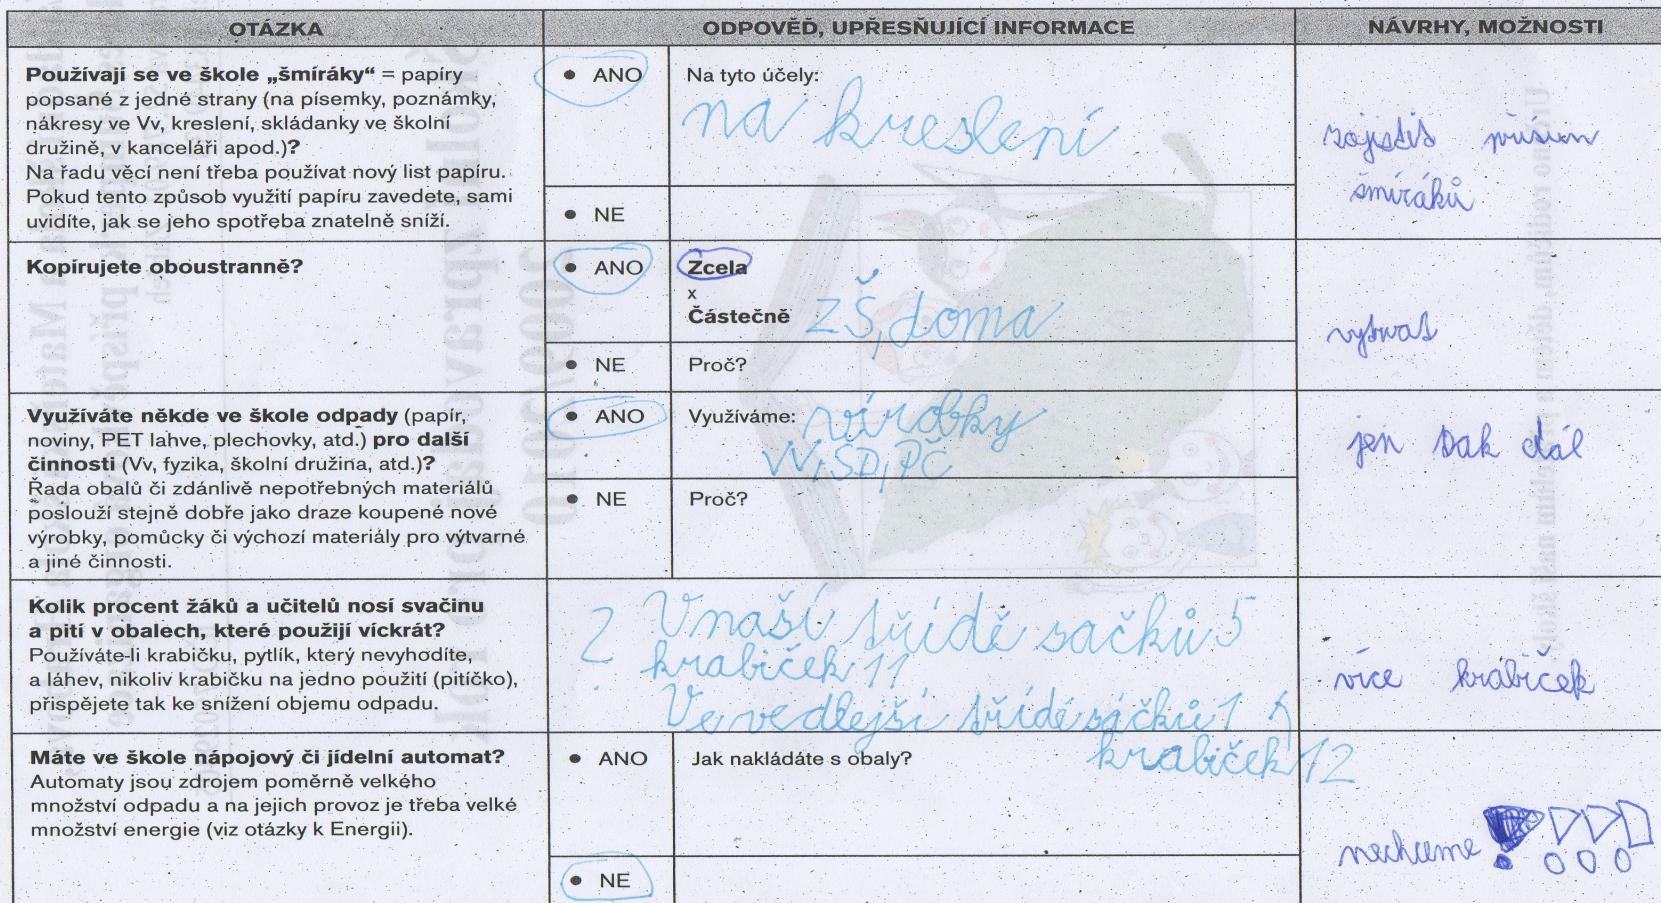 OTÁZKA
ODPOVĚĎ, UPŘESŇUJÍCÍ INFORMACE
NÁVRHY, MOŽNOSTI
Používají se ve škole „šmíráky“ = papíry
popsané z jedné strany (na písemky, poznámky,
nákresy ve Vv, kreslení, skládanky ve školní
družině, v kanceláři apod.)?
Na řadu věcí není třeba používat nový list papíru.
Pokud tento způsob využití papíru zavedete, sami
uvidíte, jak se jeho spotřeba znatelně sníží.
• ANO
Na tyto účely:
na kreslení
• NE
zajistit přísun
šmíráků
Kopírujete oboustranně?
• ANO
Zcela
x
Částečně ZŠ, doma
• NE
Proč?
vytrvat
Využíváte někde ve škole odpady (papír,
noviny, PET lahve, plechovky, atd.) pro další
činnosti (Vv, fyzika, školní družina, atd.)?
Řada obalů či zdánlivě nepotřebných materiálů
poslouží stejně dobře jako draze koupené nové
výrobky, pomůcky či výchozí materiály pro výtvarné
a jiné činnosti.
• ANO
Využíváme: vírobky
VV, ŠD, PČ
• NE
Proč?
jen tak dál
Kolik procent žáků a učitelů nosí svačinu
a pití v obalech, které použijí víckrát?
Používáte-li krabičku, pytlík, který nevyhodíte,
a láhev, nikoliv krabičku na jedno použití (pitíčko),
přispějete tak ke snížení objemu odpadu.
? V naší třídě sačků 5
krabiček 11
Ve vedlejší třídě sáčků 1
krabiček 12
více krabiček
Máte ve škole nápojový či jídelní automat?
Automaty jsou zdrojem poměrně velkého
množství odpadu a na jejich provoz je třeba velké
množství energie (viz otázky k Energii).
• ANO
Jak nakládáte s obaly?
• NE
nechceme !!!!